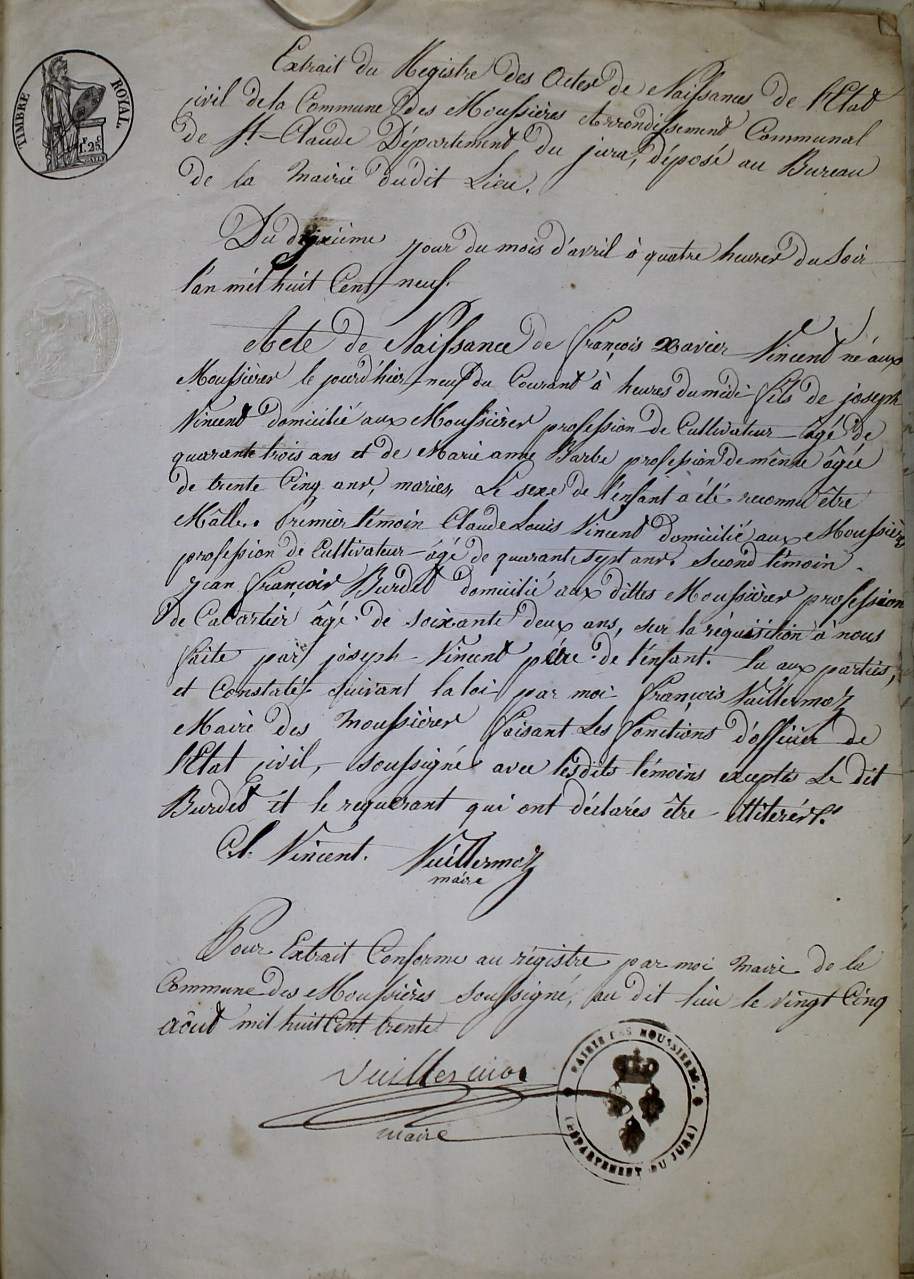 TIMBRE ROYAL.
1F. 25C.
Extrait du Registre des Actes de Naissances de l'Etat
civil de la Commune des Moussières Arrondissement Communal
de St. Claude Département du jura, déposé au Bureau
de la Mairie dudit Lieu.
Du dixième jour du mois d'avril à quatre heures du Soir
l'an mil huit Cent neuf.
Acte de Naissance de françois Xavier Vincent né aux
Moussières le jourd'hier neuf du Courant à heures du midi fils de joseph
Vincent domicilié aux Moussières profession de Cultivateur âgé de
quarante trois ans et de Marie anne Barbe profession de même âgée
de trente Cinq ans, mariés, Le sexe de l'enfant à été reconnu être
Mâlle. Premier témoin Claude Louis Vincent domicilié aux Moussières
profession de Cultivateur âgé de quarante sept ans. second témoin
jean françois Burdet domicilié aux dittes Moussières profession
de Cabartier âgé de soixante deux ans, sur la réquisition à nous
faite par joseph Vincent père de l'enfant. Lu aux parties,
et Constaté suivant la loi par moi françois Vuillermoz
Maire des Moussières faisant Les fonctions d'officier de
l'Etat civil, soussigné avec lesdits témoins excepté Le dit
Burdet et le requerant qui ont déclarés être illiterés.
Cl. Vincent. Vuillermoz
maire
Pour Extrait Conforme au régistre par moi Maire de la
Commune des Moussières soussigné, au dit lieu le vingt Cinq
Aôut mil huit Cent trente
Vuillermoz
maire
MAIRIE DES MOUSSIERES.
(DÉPARTEMENT DU JURA)